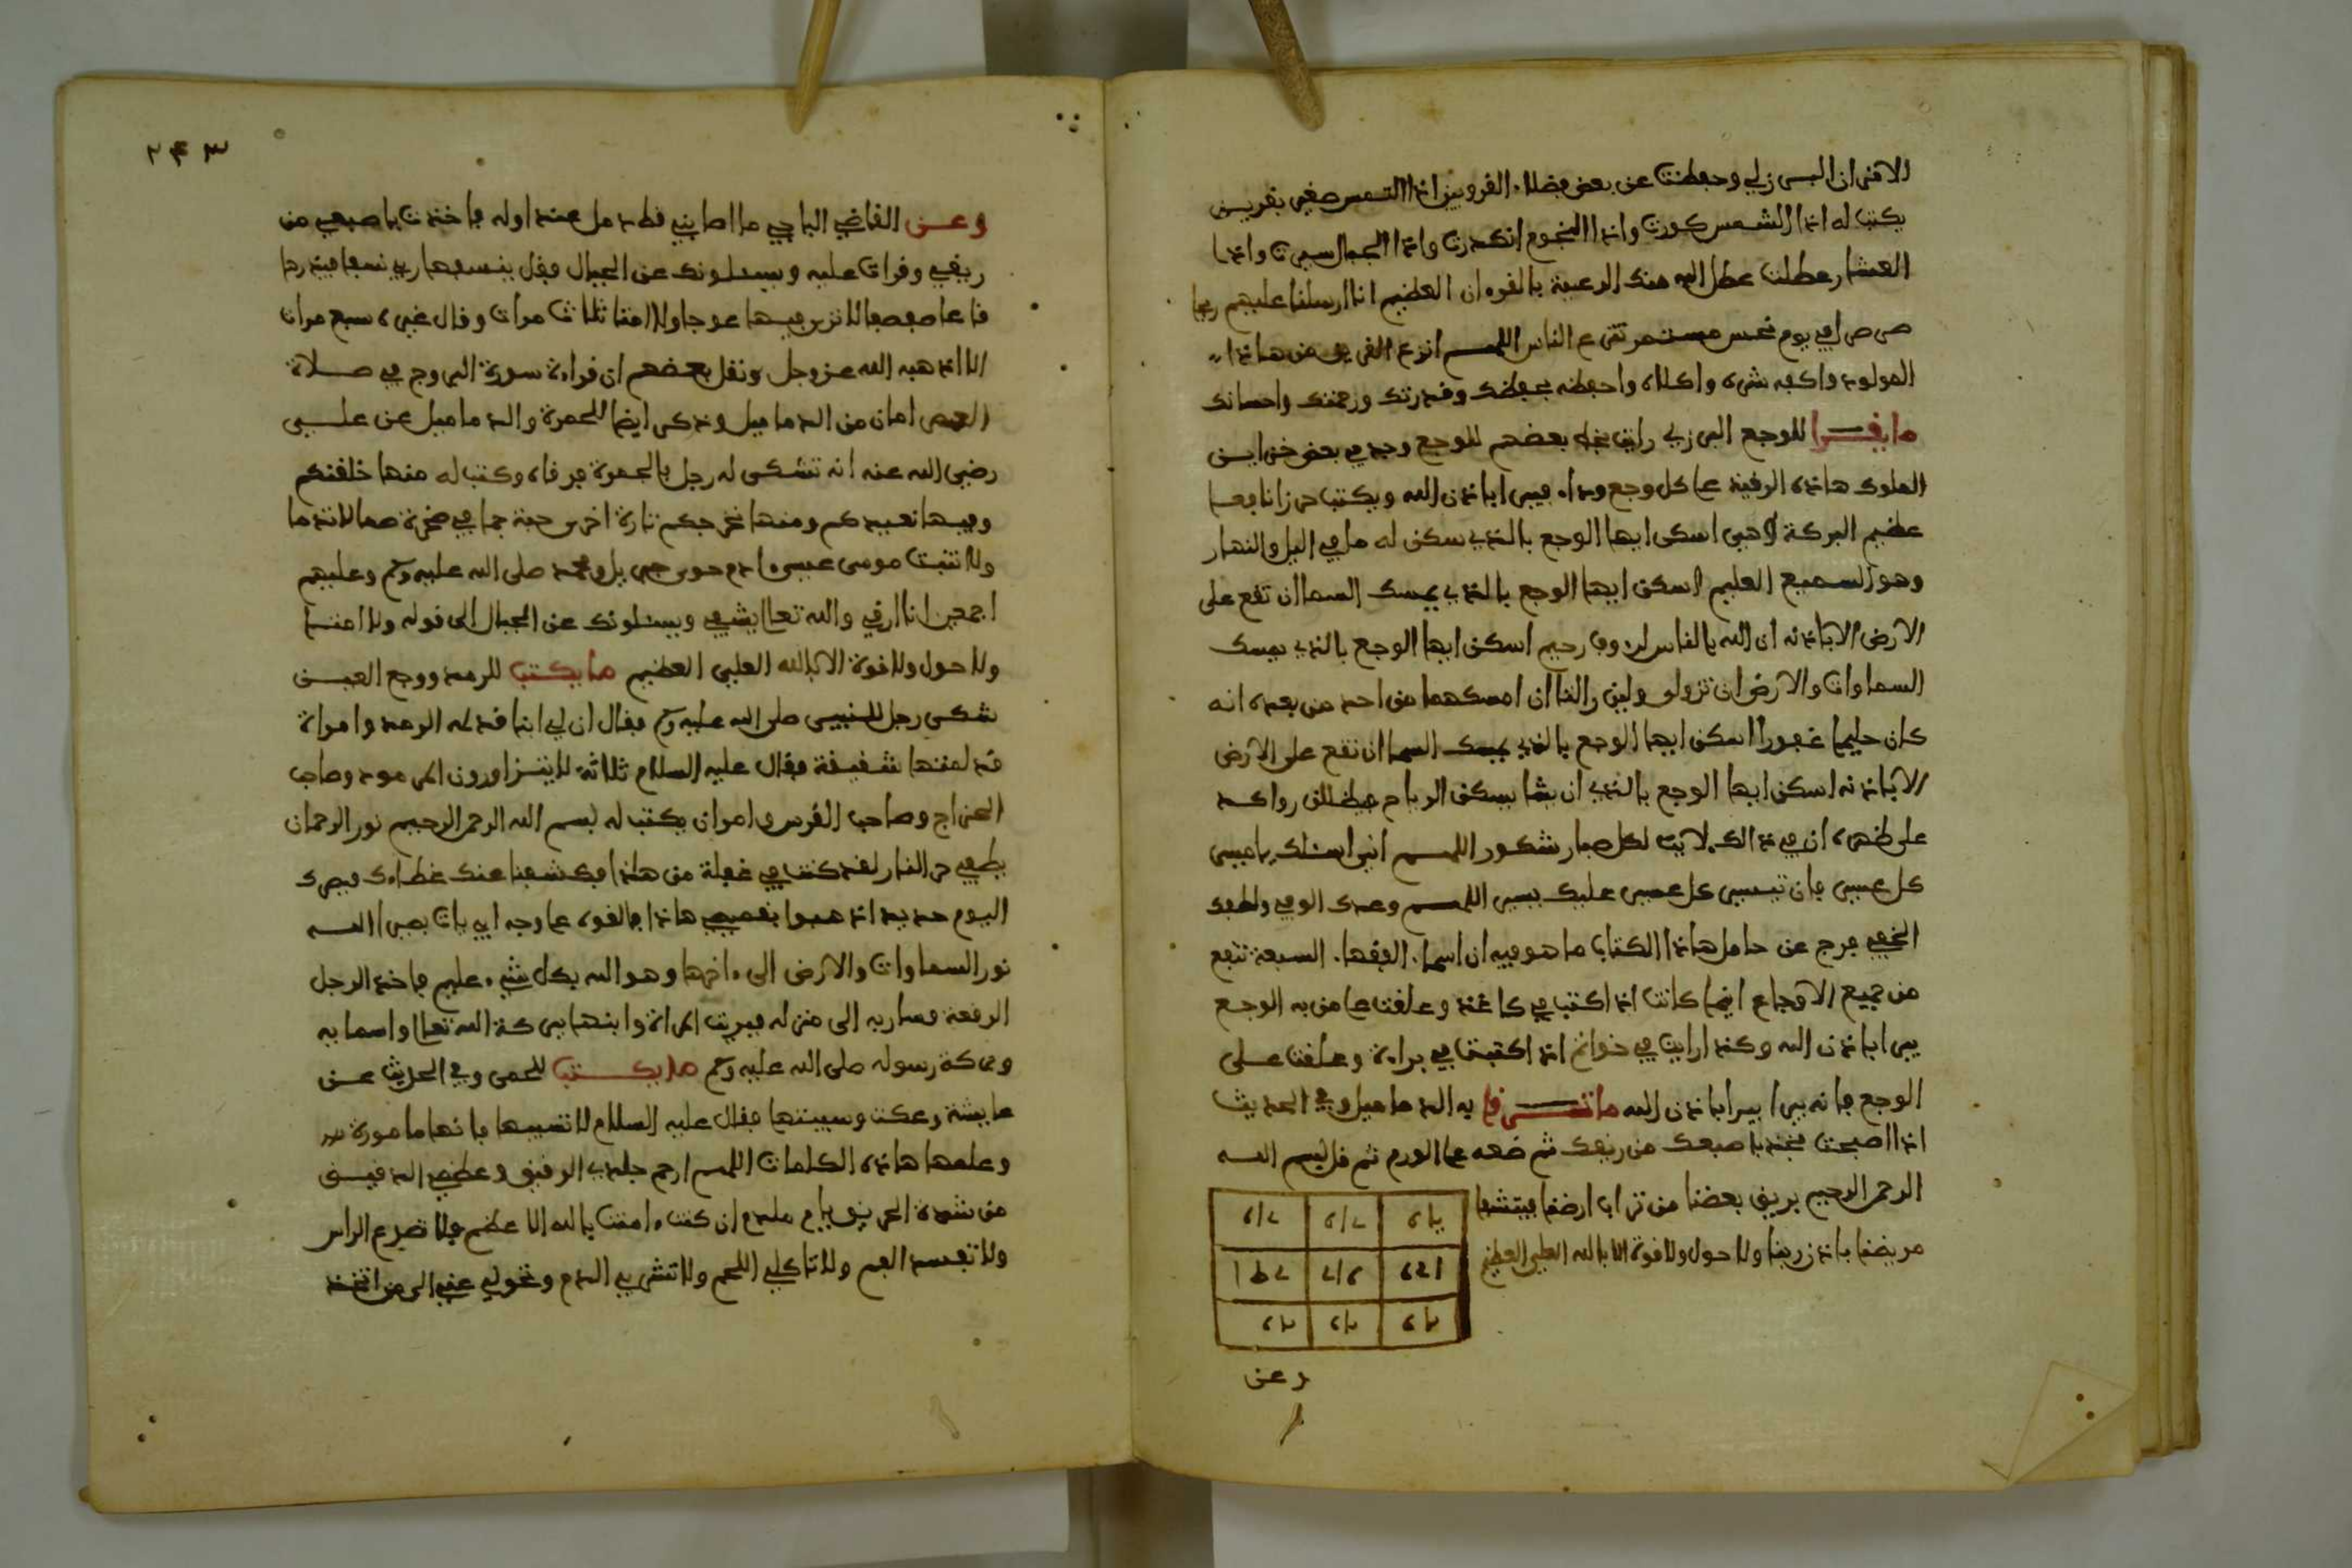 الاقتران البرزلي وحفظت عن بعض فضلاء القرويين اذا التمس صغير بقرين
يكتب له اذا الشمس كورت واذا النجوم انكدرت واذا الجبال سيرت واذا
العشار عطلت عطل الله منك الرعية بالقرءان العظيم انا ارسلنا عليهم ريحا
صرصرا في يوم نحس مستمر تنزع الناس اللهم انزع القرين من هاذا
المولود واكفه شره واكلاه واحفظه بحفظك وقدرتك ورحمتك واحسانك
ما يقرا للوجع البرزلي رايت بخط بعضهم للوجع وجد في بعض خزاين
الملوك هاذه الرقية على كل وجع وداء فيبرا باذن الله ويكتب حرزا نافعا
عظيم البركة لاهبي اسكن ايها الوجع بالذي سكن له ما في اليل والنهار
وهو السميع العليم اسكن ايها الوجع بالذي يمسك السما ان تقع على
الارض الا باذنه ان الله بالناس لروف رحيم اسكن ايها الوجع بالذي يمسك
السماوات والارض ان تزولا ولين زالتا ان امسكهما من احد من بعده انه
كان حليما غفورا اسكن ايها الوجع بالذي يمسك السما ان تقع على الارض
الا باذنه اسكن ايها الوجع بالذي ان يشا يسكن الرياح فيظللن رواكد
على ظهره ان في ذالك لايت لكل صبار شكور اللهم اني اسئلك يا ميسر
كل عسير فان تيسير كل عسير عليك يسير اللهم وعدك الوفي ولطفك
الخفي فرج عن حامل هاذا الكتاب ما هو فيه ان اسماء الفقهاء السبعة تنفع
من جميع الاوجاع ايضا كانت اذا اكتب في كاغذ وعلقت على من به الوجع
يبرا باذن الله وكذا رايت في خواتم اذا اكتبت في براءة وعلقت على
الوجع فانه يبرا يبرا باذن الله ما ترقي به الدماميل وفي الحديث
اذا اصبحت فخذ باصبعك من ريقك ثم ضعه على الورم ثم قل بسم الله
الرحمن الرحيم بريق بعضنا من تراب ارضنا فيتشفا
مريضنا باذن ربنا ولا حول ولا قوة الا بالله العلي العظيم
وعن
٢٤٣
وعن القاضي الباجي ما اصابني قط دمل عند اوله فاخذت باصبعي من
ريقي وقرات عليه ويسئلونك عن الجبال فقل ينسفها ربي نسفا فيذرها
قاعا صفصفا لا ترى فيها عوجا ولا امتا ثلاث مرات وقال غيره سبع مرات
الا اذهبه الله عز وجل ونقل بعضهم ان قراءة سورة البروج في صلاة
العصر امان من الدماميل وذكر ايضا للحمرة والدماميل عن علي
رضي الله عنه انه تشكى له رجل بالحمرة فرقاه وكتب له منها خلقنكم
وفيها نعيدكم ومنها نخرجكم تارة اخرى حبة جما في صخرة صما لا ندما
ولا تثبت موسى عيسى ادم حوى جبريل ومحمد صلى الله عليه وسلم وعليهم
اجمعين انا ارقي والله تعالى يشفي ويسئلونك عن الجبال الى قوله ولا امتا
ولا حول ولا قوة الا بالله العلي العظيم ما يكتب للرمد ووجع العين
شكى رجل للنبي صلى الله عليه وسلم فقال ان لي ابنا قد له الرمد وامراة
قد لمتها شقيقة فقال عليه السلام ثلاثة لا يتزاورون المرمود وصاحب
الحزاج وصاحب الضرس وامر ان يكتب له بسم الله الرحمن الرحيم نور الرحمان
يطفي حر النار لقد كنت في غفلة من هاذا فكشفنا عنك غطاءك فبصرك
اليوم حديد اذهبوا بقميصي هاذا فالقوه على وجه ابي يات بصيرا الله
نور السماوات والارض الى ءاخرها وهو الله بكل شيء عليم فاخذ الرجل
الرقعة فسار به الى منزله فبريت المراة وابنها ببركة الله تعالى واسمايه
وبركة رسوله صلى الله عليه وسلم ما يكتب للحمى وفي الحديث عن
عايشة وعكت وسبتها فقال عليه السلام لا تسبيها فانها مامورة
وعلمها هاذه الكلمات اللهم ارحم جلدي الرقيق وعظمي الدقيق
من شدة الحريق يا ام ملدم ان كنت ءامنت بالله الاعظم فلا تصدع الراس
ولا تفسد الفم ولا تاكلي اللحم ولا تشربي الدم وتحولي عني الى من اتخذ